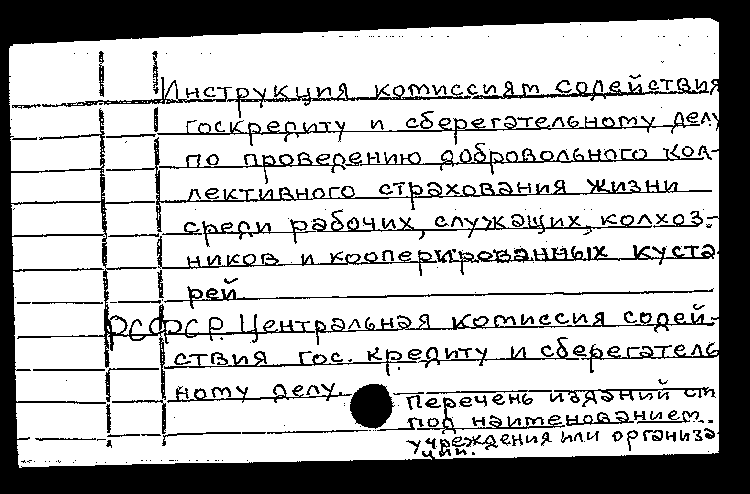 Инструкция комиссиям содействия
госкредиту и сберегательному делу
по проведению добровольного кол-
лективного страхования жизни
среди рабочих, служащих, колхоз-
ников и кооперированных куста-
рей.
РСФСР. Центральная комиссия содей-
ствия гос. кредиту и сберегатель
ному делу.
Перечень изданий см
под наименованием
учреждения или организа-
ции.